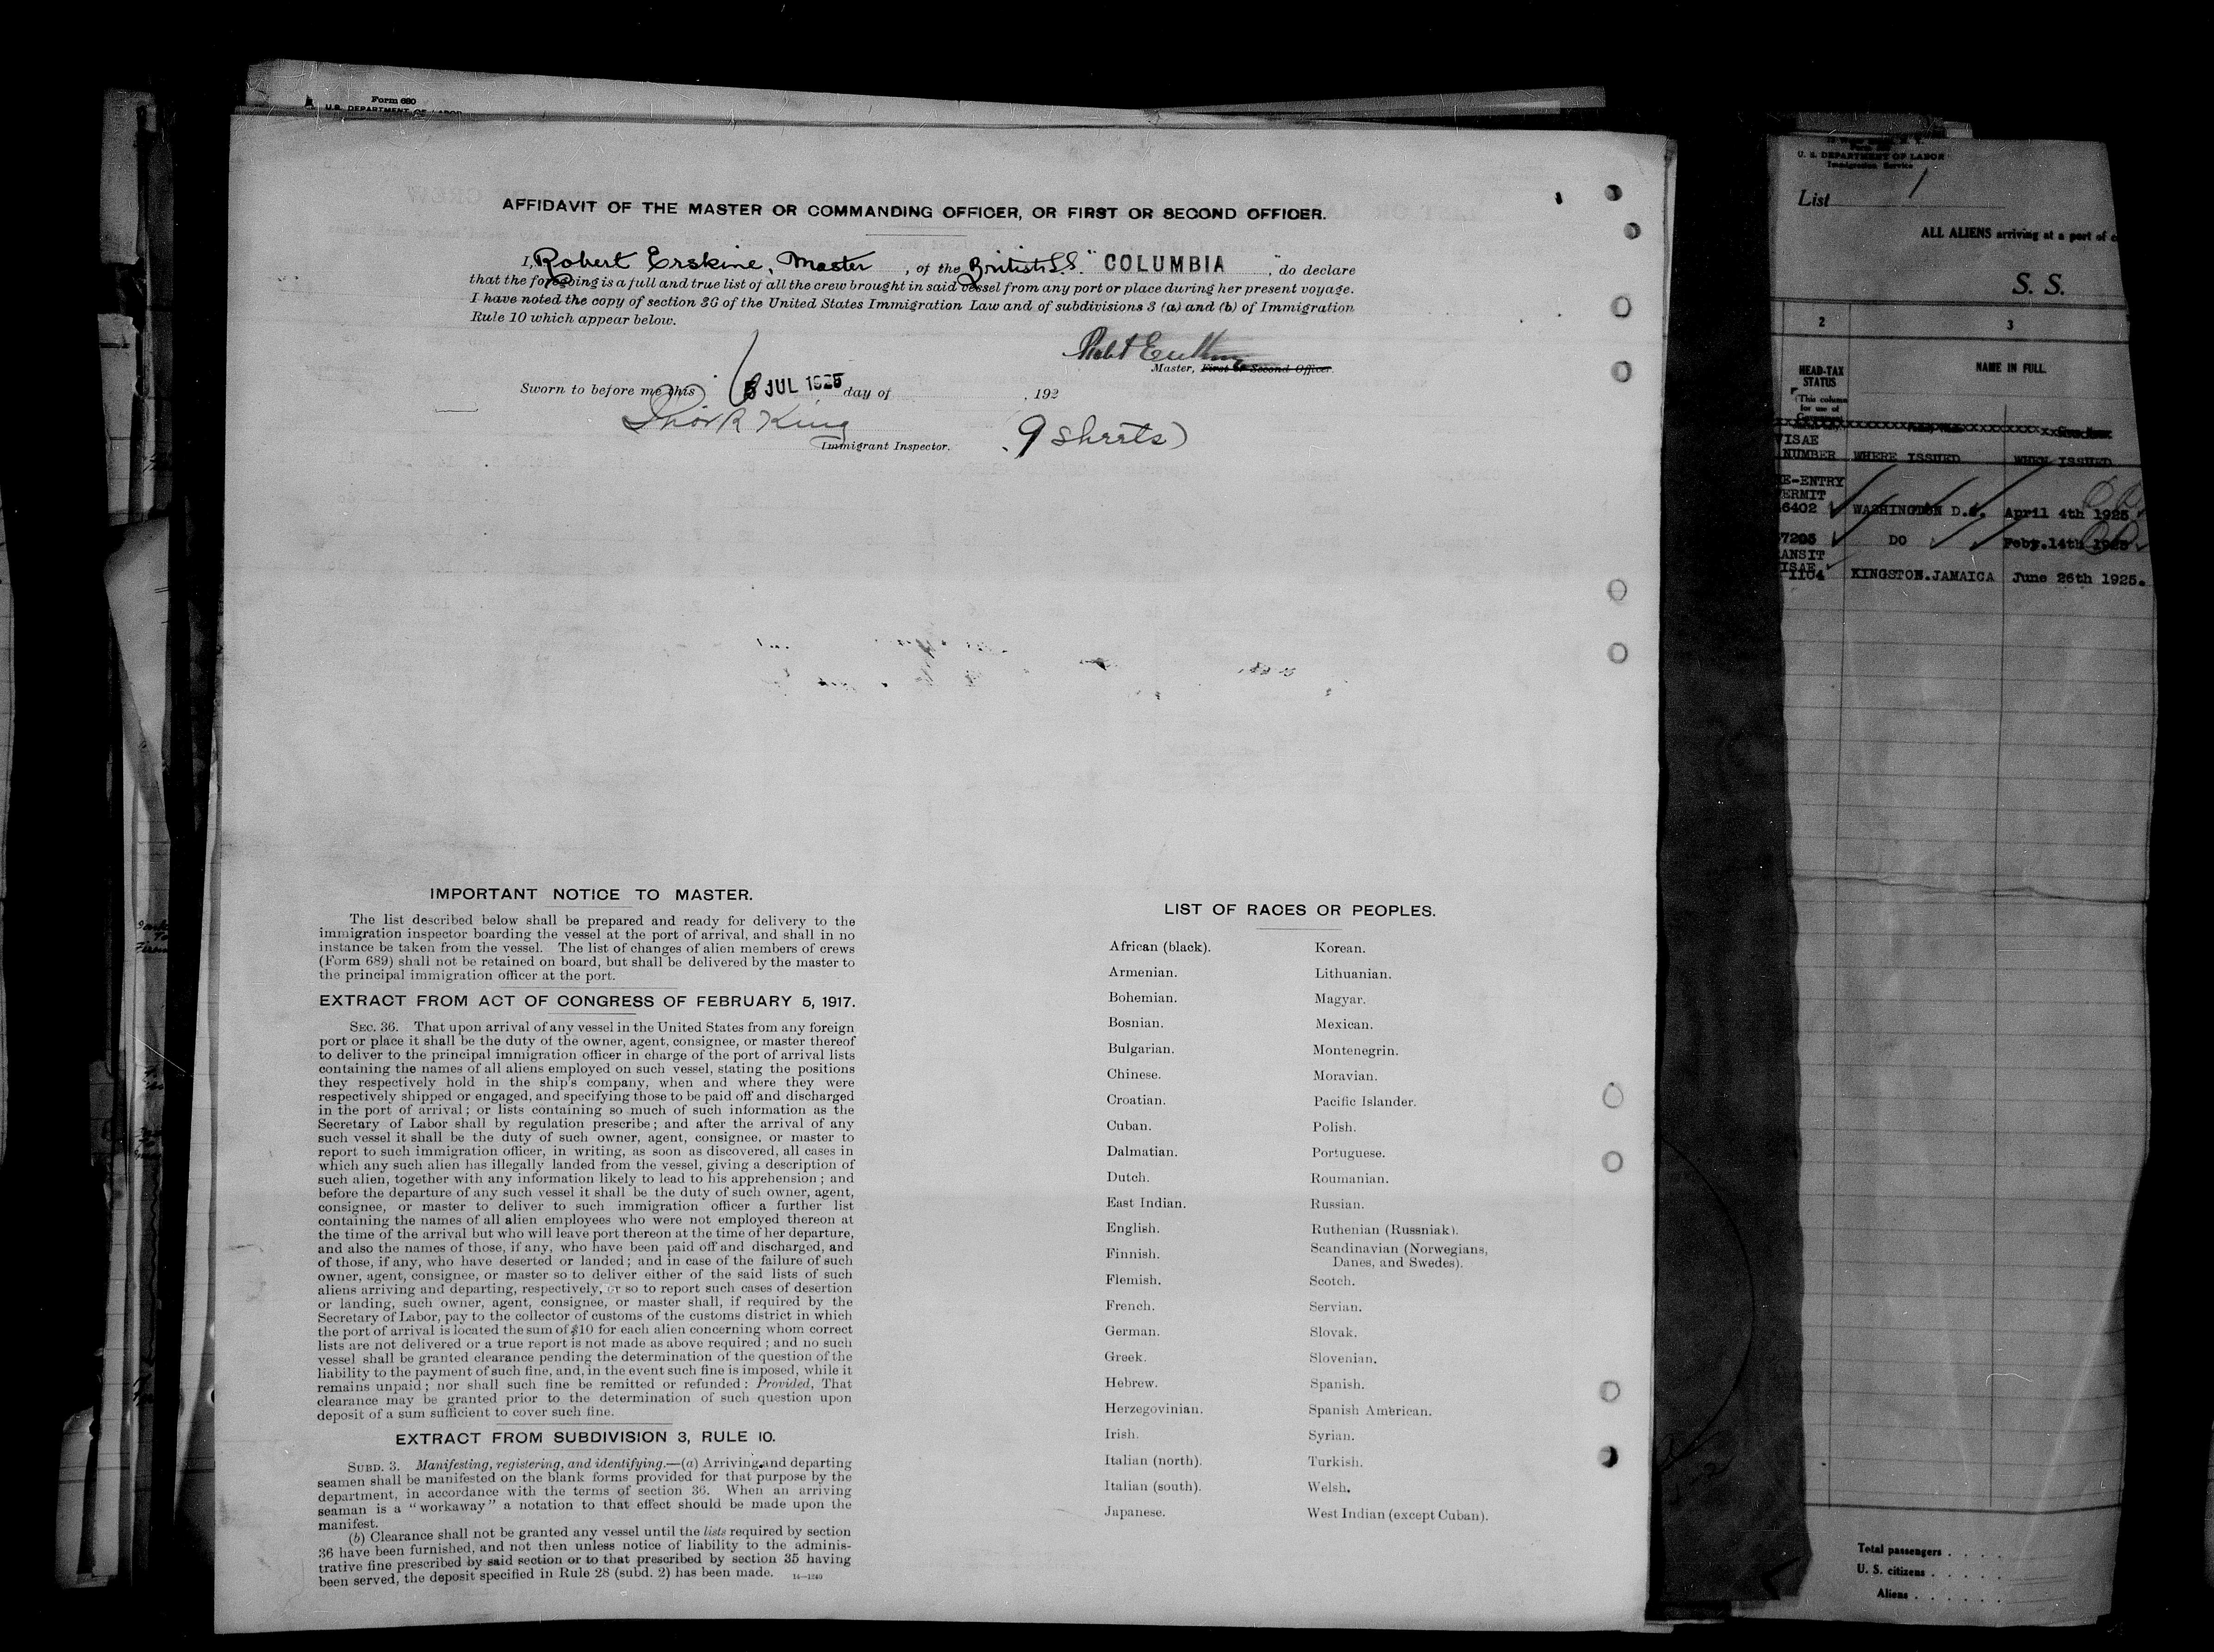 Form 680
U.S. DEPARTMENT OF LABOR
AFFIDAVIT OF THE MASTER OR COMMANDING OFFICER, OR FIRST OR SECOND OFFICER.
I, Robert Erskine, Master, of the British S.S. "COLUMBIA", do declare
that the foregoing is a full and true list of all the crew brought in said vessel from any port or place during her present voyage.
I have noted the copy of section 36 of the United States Immigration Law and of subdivisions 3 (a) and (b) of Immigration
Rule 10 which appear below.
Master, First or Second Officer.
Sworn to before me this JUL 1925 day of , 192
King
Immigrant Inspector.
9 sheets)
IMPORTANT NOTICE TO MASTER.
The list described below shall be prepared and ready for delivery to the
immigration inspector boarding the vessel at the port of arrival, and shall in no
instance be taken from the vessel. The list of changes of alien members of crews
(Form 689) shall not be retained on board, but shall be delivered by the master to
the principal immigration officer at the port.
EXTRACT FROM ACT OF CONGRESS OF FEBRUARY 5, 1917.
SEC. 36. That upon arrival of any vessel in the United States from any foreign
port or place it shall be the duty of the owner, agent, consignee, or master thereof
to deliver to the principal immigration officer in charge of the port of arrival lists
containing the names of all aliens employed on such vessel, stating the positions
they respectively hold in the ship's company, when and where they were
respectively shipped or engaged, and specifying those to be paid off and discharged
in the port of arrival; or lists containing so much of such information as the
Secretary of Labor shall by regulation prescribe; and after the arrival of any
such vessel it shall be the duty of such owner, agent, consignee, or master to
report to such immigration officer, in writing, as soon as discovered, all cases in
which any such alien has illegally landed from the vessel, giving a description of
such alien, together with any information likely to lead to his apprehension; and
before the departure of any such vessel it shall be the duty of such owner, agent,
consignee, or master to deliver to such immigration officer a further list
containing the names of all alien employees who were not employed thereon at
the time of the arrival but who will leave port thereon at the time of her departure,
and also the names of those, if any, who have been paid off and discharged, and
of those, if any, who have deserted or landed; and in case of the failure of such
owner, agent, consignee, or master so to deliver either of the said lists of such
aliens arriving and departing, respectively, or so to report such cases of desertion
or landing, such owner, agent, consignee, or master shall, if required by the
Secretary of Labor, pay to the collector of customs of the customs district in which
the port of arrival is located the sum of $10 for each alien concerning whom correct
lists are not delivered or a true report is not made as above required; and no such
vessel shall be granted clearance pending the determination of the question of the
liability to the payment of such fine, and, in the event such fine is imposed, while it
remains unpaid; nor shall such fine be remitted or refunded: Provided, That
clearance may be granted prior to the determination of such question upon
deposit of a sum sufficient to cover such fine.
EXTRACT FROM SUBDIVISION 3, RULE 10.
SUBD. 3. Manifesting, registering, and identifying.—(a) Arriving and departing
seamen shall be manifested on the blank forms provided for that purpose by the
department, in accordance with the terms of section 36. When an arriving
seaman is a "workaway" a notation to that effect should be made upon the
manifest.
(b) Clearance shall not be granted any vessel until the lists required by section
36 have been furnished, and not then unless notice of liability to the adminis-
trative fine prescribed by said section or to that prescribed by section 35 having
been served, the deposit specified in Rule 28 (subd. 2) has been made. 14—1240
LIST OF RACES OR PEOPLES.
African (black). Korean.
Armenian. Lithuanian.
Bohemian. Magyar.
Bosnian. Mexican.
Bulgarian. Montenegrin.
Chinese. Moravian.
Croatian. Pacific Islander.
Cuban. Polish.
Dalmatian. Portuguese.
Dutch. Roumanian.
East Indian. Russian.
English. Ruthenian (Russniak).
Finnish. Scandinavian (Norwegians,
Danes, and Swedes).
Flemish. Scotch.
French. Servian.
German. Slovak.
Greek. Slovenian.
Hebrew. Spanish.
Herzegovinian. Spanish American.
Irish. Syrian.
Italian (north). Turkish.
Italian (south). Welsh.
Japanese. West Indian (except Cuban).
U. S. DEPARTMENT OF LABOR
Immigration Service
List 1
ALL ALIENS arriving at a port of
S. S.
2 3
HEAD-TAX
STATUS
NAME IN FULL
(This column
for use of
Government
VISAE
NUMBER WHERE ISSUED WHEN ISSUED
E-ENTRY
ERMIT
6402 WASHINGTON D.C. April 4th 1925
7203 DO Feby.14th 1925
ANSIT
ISAE
1104 KINGSTON.JAMAICA June 26th 1925.
Total passengers . . . .
U. S. citizens . . . . .
Aliens . . . . . .